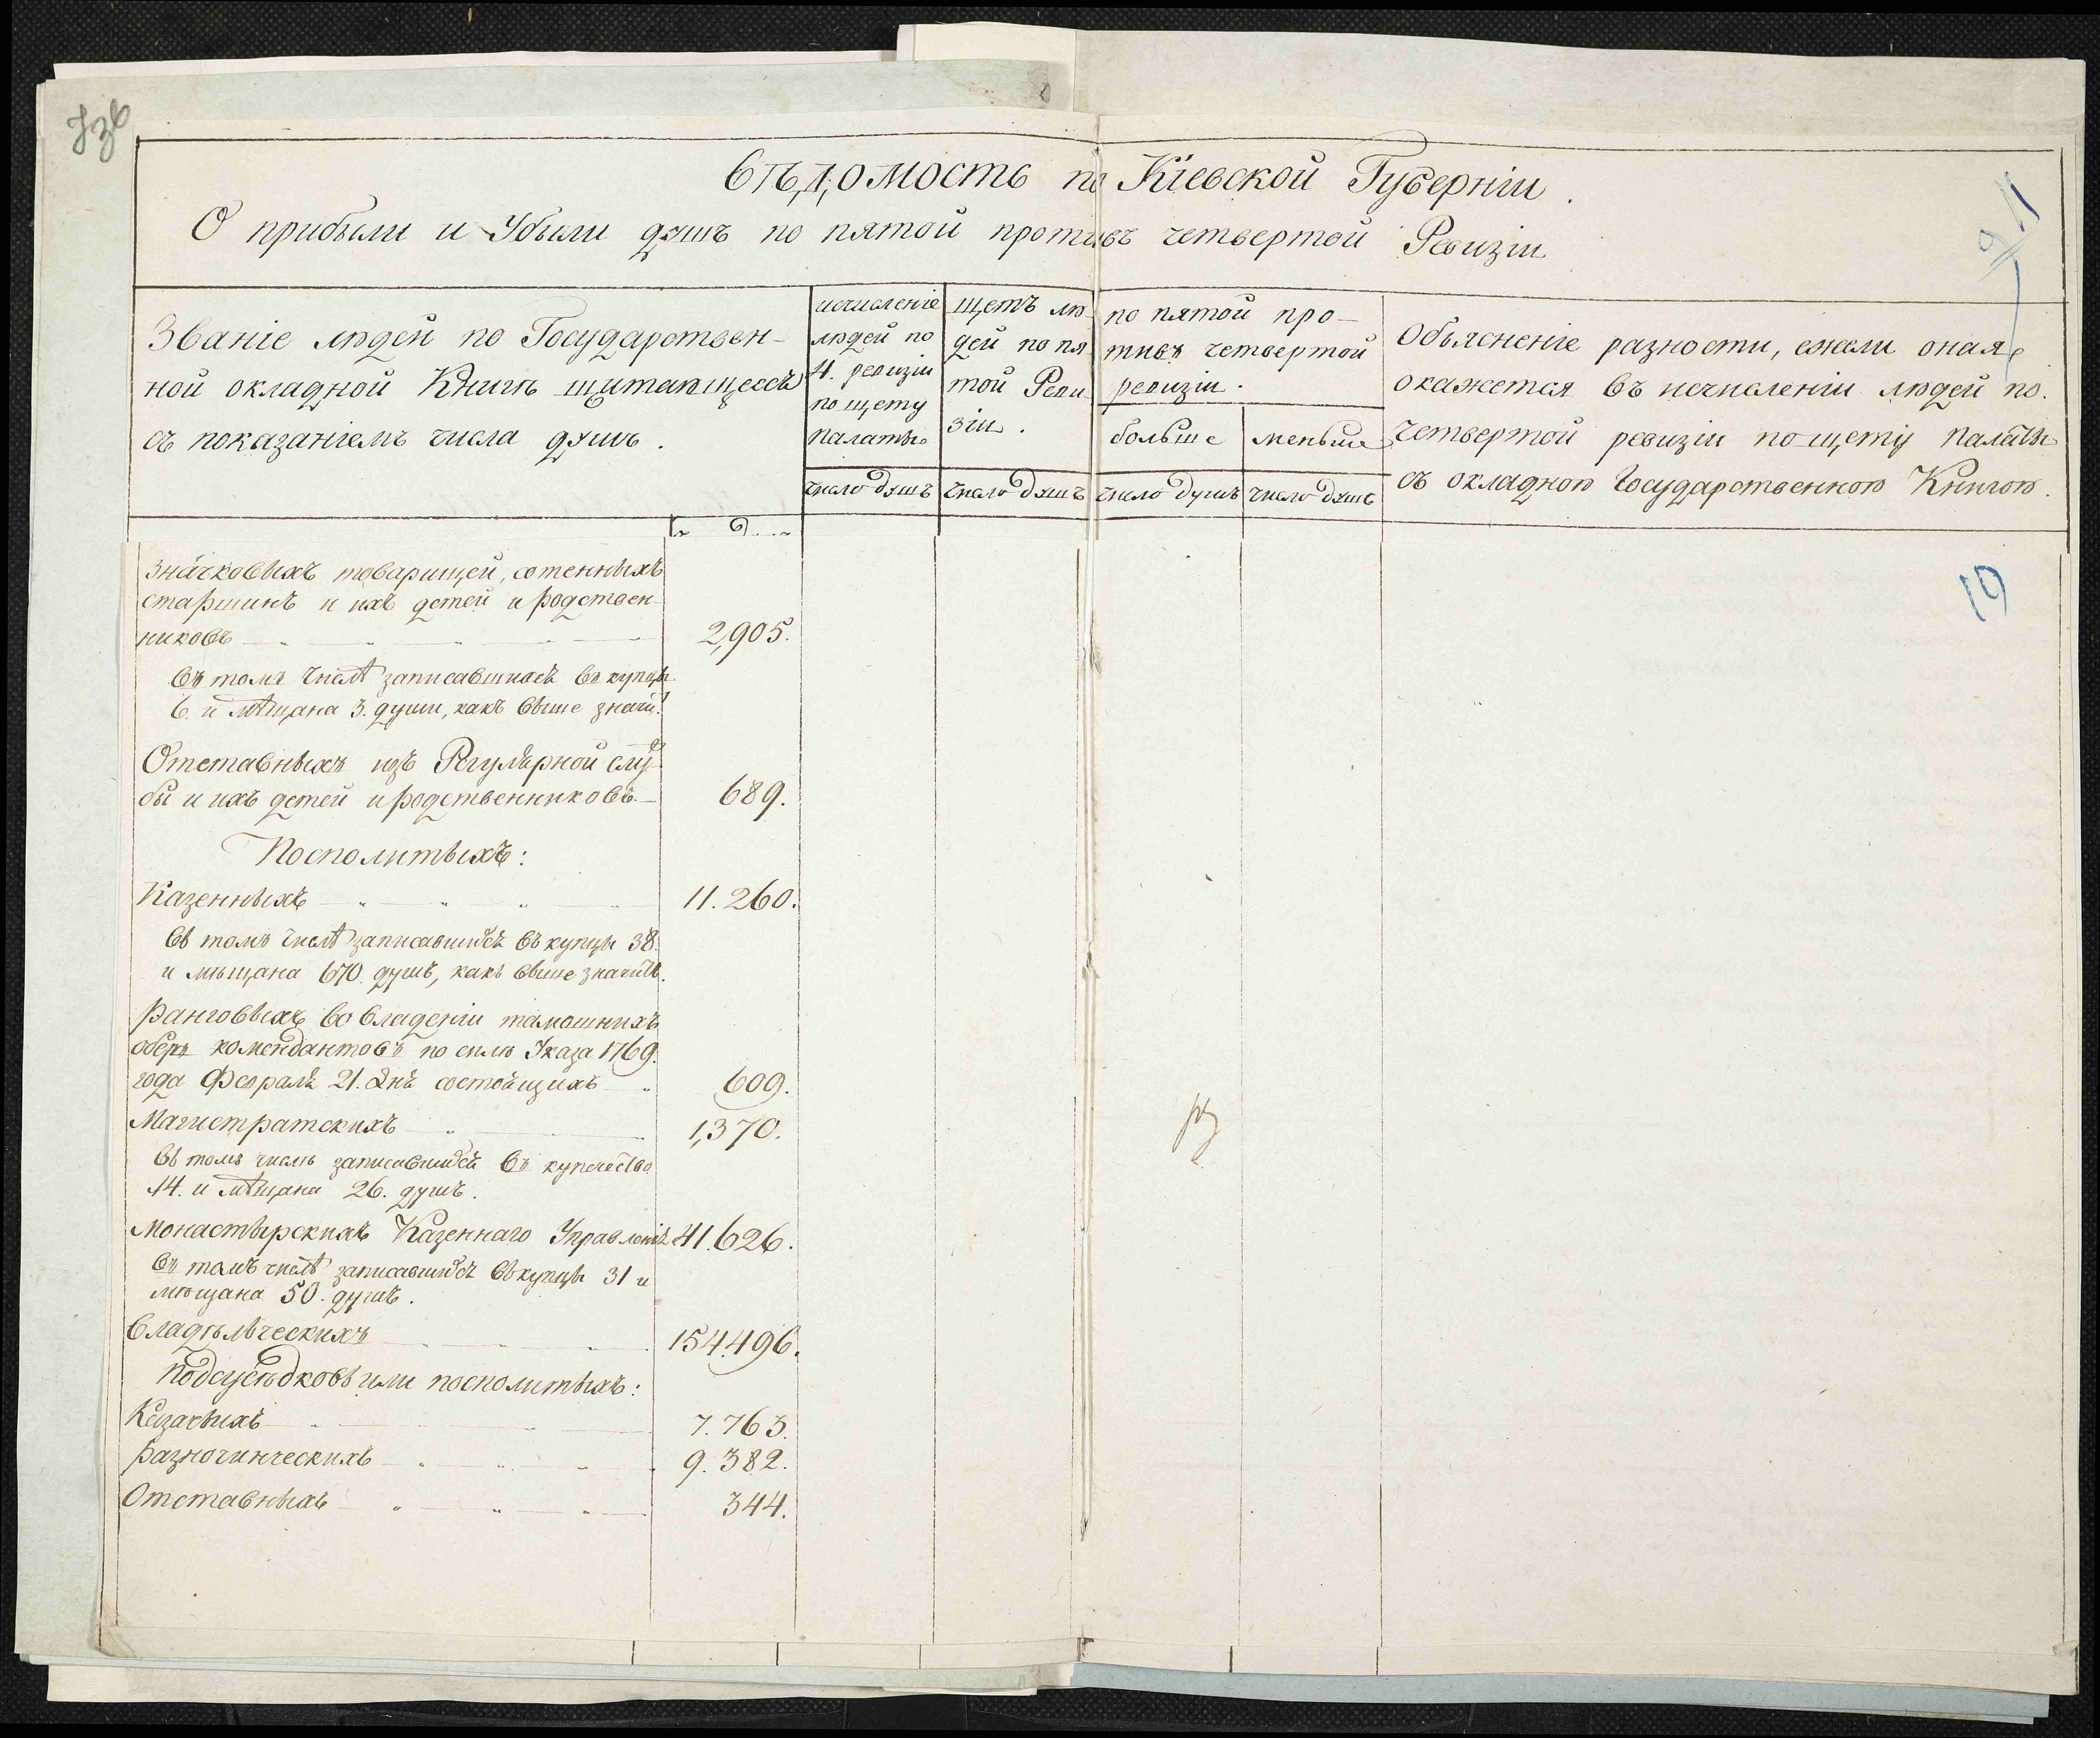 Вѣдомость по Кіевской Губерніи.
О прибыли и Убыли душъ по пятой противъ четвертой Ревизіи
Званіе людей по Государствен-
ной окладной Книгѣ щитающихся
съ показаніемъ числа душъ.
исчисленіе
людей по
4. ревизіи
по щету
Палаты
число душъ
щетъ лю-
дей по пя-
той Реви-
зіи.
число душъ
по пятой про-
тивъ четвертой
ревизіи.
больше
число душъ
меньше
число душъ
Объясненіе разности, ежели оная
окажется въ исчисленіи людей по
четвертой ревизіи по щету палаты
съ окладною Государственною Книгою.
19
Значковыхъ товарищей, сотенныхъ
старшинъ и ихъ детей и родствен-
никовъ 2,905.
въ томъ числѣ записавшихся въ купцы
6. и мѣщана 3. души, какъ выше значит
Отставныхъ изъ Регулярной служ
бы и ихъ детей и родственниковъ 689.
Посполитыхъ:
Казенныхъ 11.260.
въ томъ числѣ записавшихся въ купцы 38.
и мѣщана 670. душъ, какъ выше значитъ.
Ранговыхъ во владеніи тамошнихъ
оберъ комендантовъ по силѣ Указа 1769.
года Февраля 21. дня состоящихъ 609.
Магистратскихъ 1,370.
въ томъ числѣ записавшихся въ купечество
14. и мѣщана 26. душъ.
Монастырскихъ Казеннаго Управленія 41.626.
въ томъ числѣ записавшихся въ купцы 31 и
мѣщана 50. душъ.
Владѣлческихъ 154.496.
Подсусѣдковъ или посполитыхъ:
Казачьихъ 7.763.
Разночинческихъ 9.382.
Отставныхъ 344.